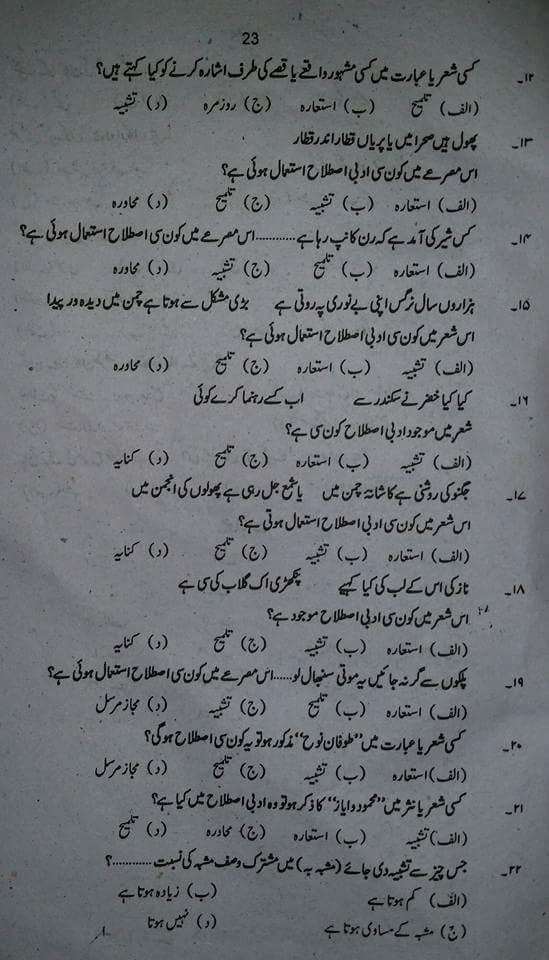 23
۱۲۔ کسی شعر یا عبارت میں کسی مشہور واقعے یا قصے کی طرف اشارہ کرنے کو کیا کہتے ہیں؟
(الف) تلمیح (ب) استعارہ (ج) روزمرہ (د) تشبیہ
۱۳۔ پھول ہیں صحرا میں یا پریاں قطار اندر قطار
اس مصرعے میں کون سی ادبی اصطلاح استعمال ہوئی ہے؟
(الف) استعارہ (ب) تشبیہ (ج) تلمیح (د) محاورہ
۱۴۔ کس شیر کی آمد ہے کہ رن کانپ رہا ہے ............ اس مصرعے میں کون سی اصطلاح استعمال ہوئی ہے؟
(الف) استعارہ (ب) تلمیح (ج) تشبیہ (د) محاورہ
۱۵۔ ہزاروں سال نرگس اپنی بے نوری پہ روتی ہے بڑی مشکل سے ہوتا ہے چمن میں دیدہ ور پیدا
اس شعر میں کون سی ادبی اصطلاح استعمال ہوئی ہے؟
(الف) تشبیہ (ب) استعارہ (ج) تلمیح (د) محاورہ
۱۶۔ کیا کیا خضر نے سکندر سے اب کسے رہنما کرے کوئی
شعر میں موجود ادبی اصطلاح کون سی ہے؟
(الف) تشبیہ (ب) استعارہ (ج) تلمیح (د) کنایہ
۱۷۔ جگنو کی روشنی ہے کاشانۂ چمن میں یا شمع جل رہی ہے پھولوں کی انجمن میں
اس شعر میں کون سی ادبی اصطلاح استعمال ہوئی ہے؟
(الف) استعارہ (ب) تشبیہ (ج) تلمیح (د) کنایہ
۱۸۔ نازکی اس کے لب کی کیا کہیے پنکھڑی اک گلاب کی سی ہے
اس شعر میں کون سی ادبی اصطلاح موجود ہے؟
(الف) استعارہ (ب) تشبیہ (ج) تلمیح (د) کنایہ
۱۹۔ پلکوں سے گر نہ جائیں یہ موتی سنبھال لو...... اس مصرعے میں کون سی اصطلاح استعمال ہوئی ہے؟
(الف) استعارہ (ب) تلمیح (ج) تشبیہ (د) مجاز مرسل
۲۰۔ کسی شعر یا عبارت میں ’’طوفان نوح‘‘ مذکور ہو تو یہ کون سی اصطلاح ہوگی؟
(الف) استعارہ (ب) تشبیہ (ج) تلمیح (د) مجاز مرسل
۲۱۔ کسی شعر یا نثر میں ’’محمود و ایاز‘‘ کا ذکر ہو تو وہ ادبی اصطلاح میں کیا ہے؟
(الف) تشبیہ (ب) استعارہ (ج) محاورہ (د) تلمیح
۲۲۔ جس چیز سے تشبیہ دی جائے (مشبہ بہ) میں مشترک وصف مشبہ کی نسبت ............؟
(الف) کم ہوتا ہے (ب) زیادہ ہوتا ہے
(ج) مشبہ کے مساوی ہوتا ہے (د) نہیں ہوتا